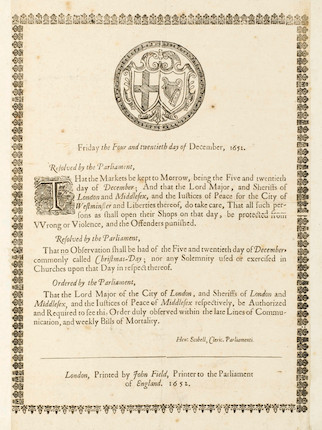 Friday the Four and twentieth day of December, 1652.
Resolved by the Parliament,
THat the Markets be kept to Morrow, being the Five and twentieth
day of December; And that the Lord Major, and Sheriffs of
London and Middlesex, and the Iustices of Peace for the City of
Westminster and Liberties thereof, do take care, That all such per-
sons as shall open their Shops on that day, be protected from
VVrong or Violence, and the Offenders punished.
Resolved by the Parliament,
That no Observation shall be had of the Five and twentieth day of December
commonly called Christmas-Day; nor any Solemnity used or exercised in
Churches upon that Day in respect thereof.
Ordered by the Parliament,
That the Lord Major of the City of London, and Sheriffs of London and
Middlesex, and the Iustices of Peace of Middlesex respectively, be Authorized
and Required to see this Order duly observed within the late Lines of Commu-
nication, and weekly Bills of Mortality.
Hen: Scobell, Cleric. Parliamenti.
London, Printed by John Field, Printer to the Parliament
of England. 1652.